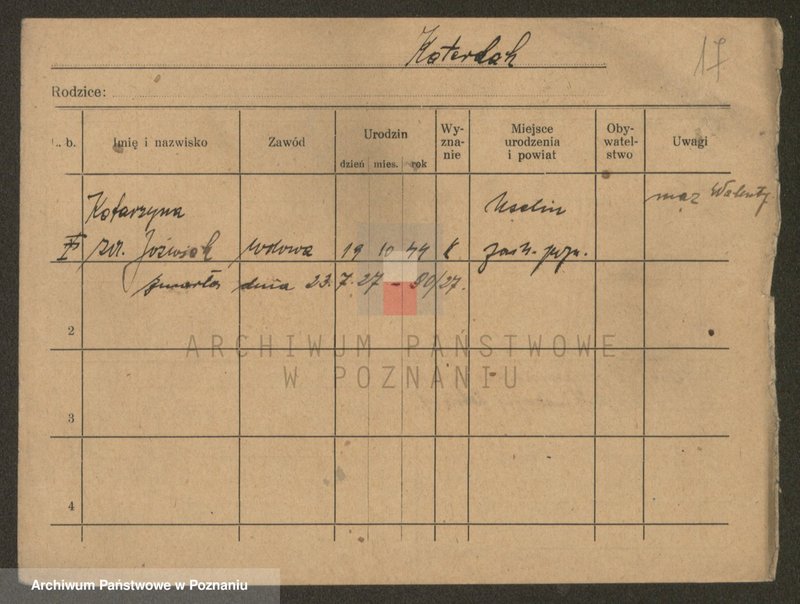 Katerdak
17
Rodzice:
L. b. Imię i nazwisko Zawód Urodzin dzień mies. rok Wy-zna-nie Miejsce urodzenia i powiat Oby-watel-stwo Uwagi
Katarzyna maż Walenty
zd. Jóźwiak wdowa 19 10 44 k
zmarła dnia 23.7.27 - 80/27.
2
3
4
ARCHIWUM PAŃSTWOWE
W POZNANIU
Archiwum Państwowe w Poznaniu